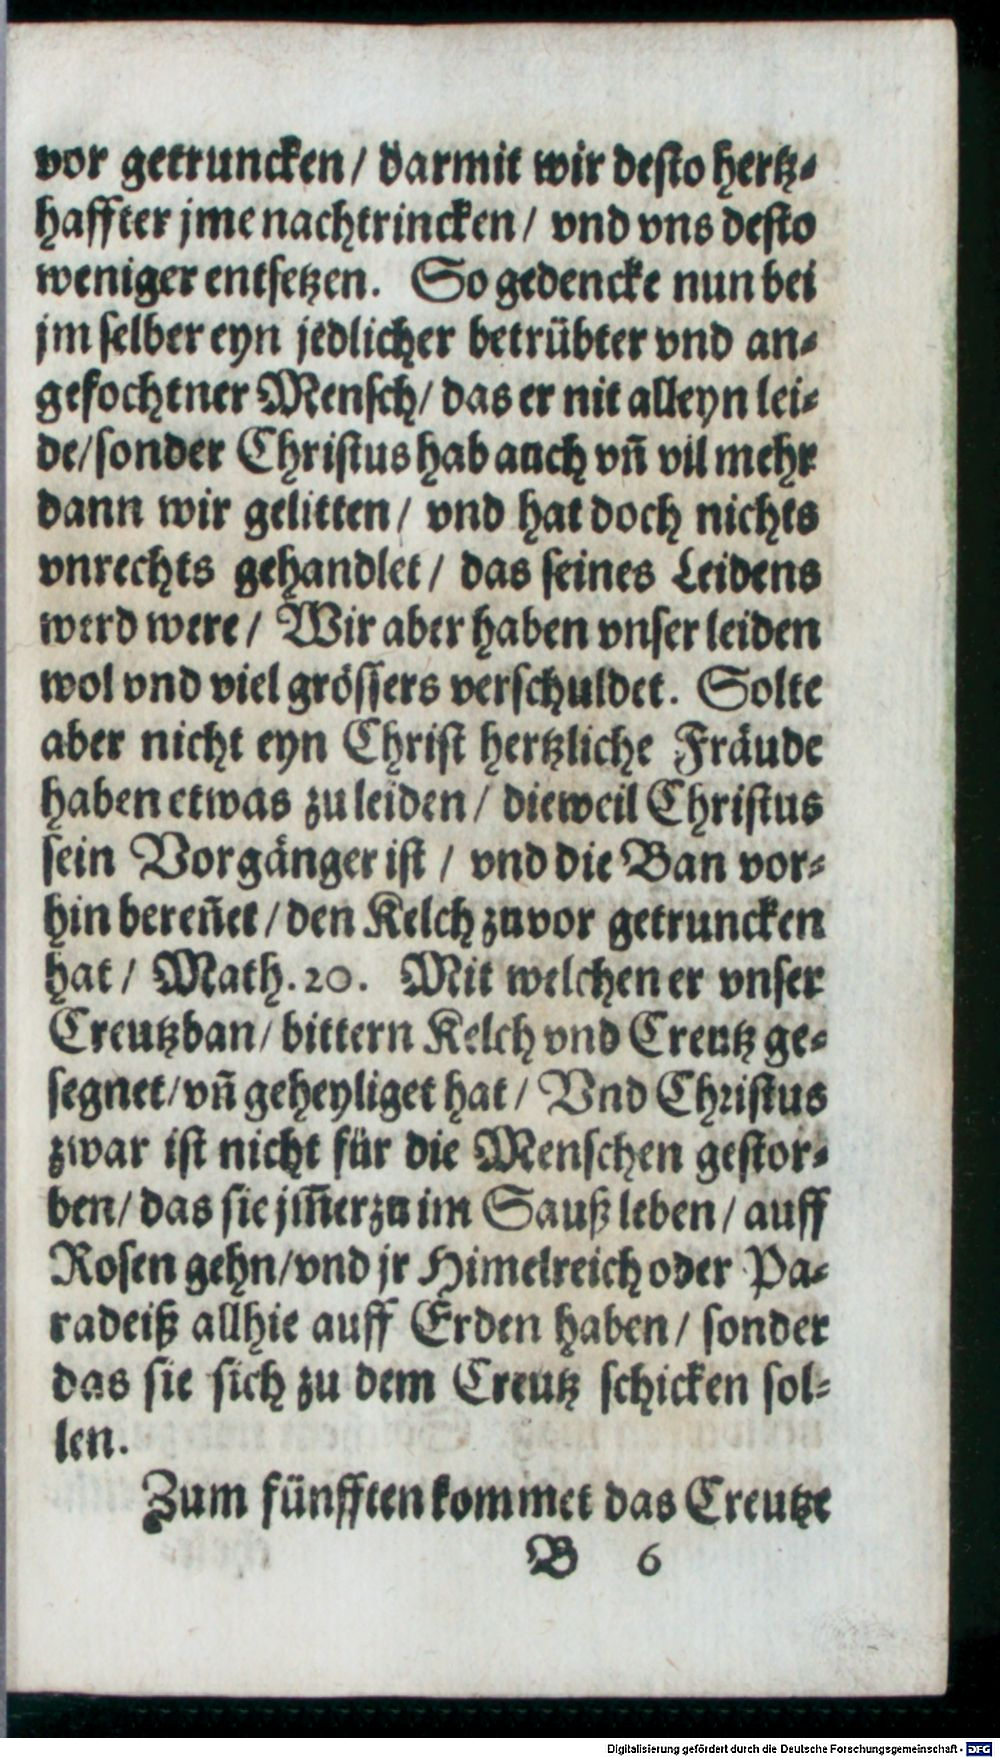 vor getruncken / darmit wir desto hertz-
haffter jme nachtrincken / vnd vns desto
weniger entsetzen. So gedencke nun bei
jm selber eyn jedlicher betrübter vnd an-
gefochtner Mensch / das er nit alleyn lei-
de / sonder Christus hab auch vñ vil mehr
dann wir gelitten / vnd hat doch nichts
vnrechts gehandlet / das seines Leidens
werd were / Wir aber haben vnser leiden
wol vnd viel grössers verschuldet. Solte
aber nicht eyn Christ hertzliche Fräude
haben etwas zu leiden / dieweil Christus
sein Vorgänger ist / vnd die Ban vor-
hin bereñet / den Kelch zuvor getruncken
hat / Math. 20. Mit welchen er vnser
Creutzban / bittern Kelch vnd Creutz ge-
segnet / vñ geheyliget hat / Vnd Christus
zwar ist nicht für die Menschen gestor-
ben / das sie jm̃erzu im Sauß leben / auff
Rosen gehn / vnd jr Himelreich oder Pa-
radeiß allhie auff Erden haben / sonder
das sie sich zu dem Creutz schicken sol-
len.
Zum fünfften kommet das Creutze
B 6
Digitalisierung gefördert durch die Deutsche Forschungsgemeinschaft - DFG